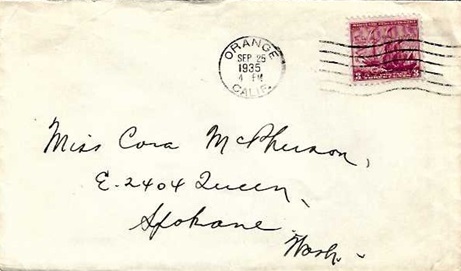 ORANGE
SEP 25
1935
4 PM
CALIF.
3 3
Miss Cora McPherson,
E-2404 Queen,
Spokane
Wash.